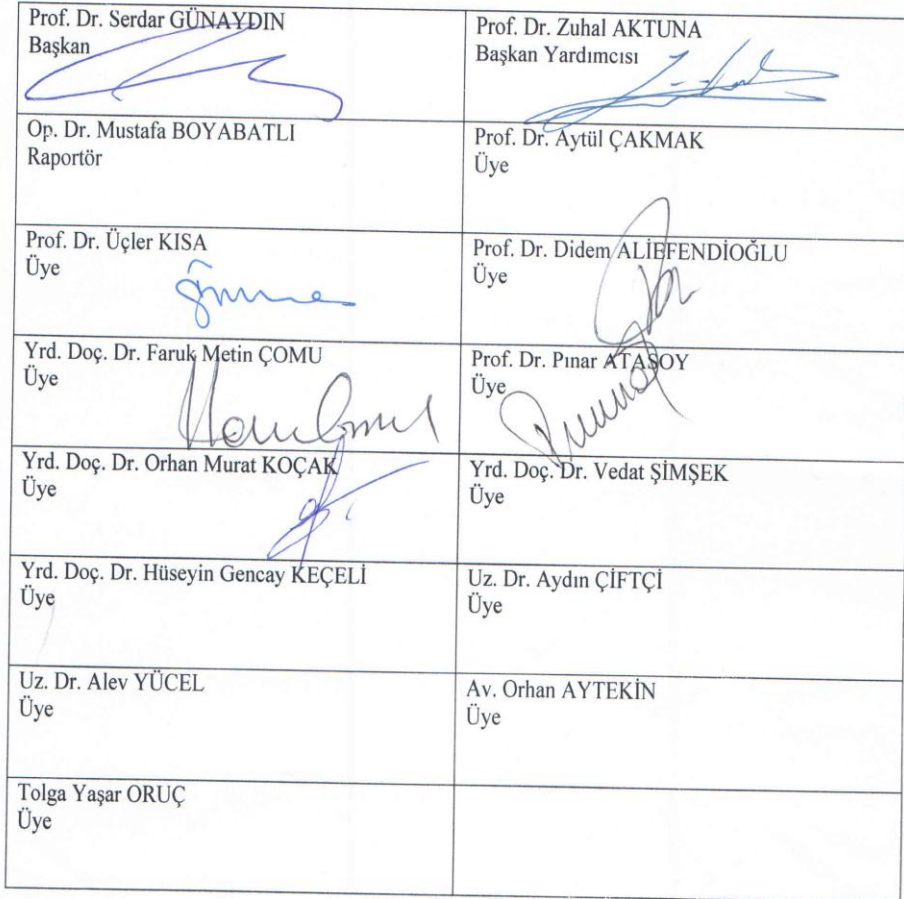 Prof. Dr. Serdar GÜNAYDIN
Başkan
Prof. Dr. Zuhal AKTUNA
Başkan Yardımcısı
Op. Dr. Mustafa BOYABATLI
Raportör
Prof. Dr. Aytül ÇAKMAK
Üye
Prof. Dr. Üçler KISA
Üye
Prof. Dr. Didem ALİEFENDİOĞLU
Üye
Yrd. Doç. Dr. Faruk Metin ÇOMU
Üye
Prof. Dr. Pınar ATASOY
Üye
Yrd. Doç. Dr. Orhan Murat KOÇAK
Üye
Yrd. Doç. Dr. Vedat ŞİMŞEK
Üye
Yrd. Doç. Dr. Hüseyin Gencay KEÇELİ
Üye
Uz. Dr. Aydın ÇİFTÇİ
Üye
Uz. Dr. Alev YÜCEL
Üye
Av. Orhan AYTEKİN
Üye
Tolga Yaşar ORUÇ
Üye